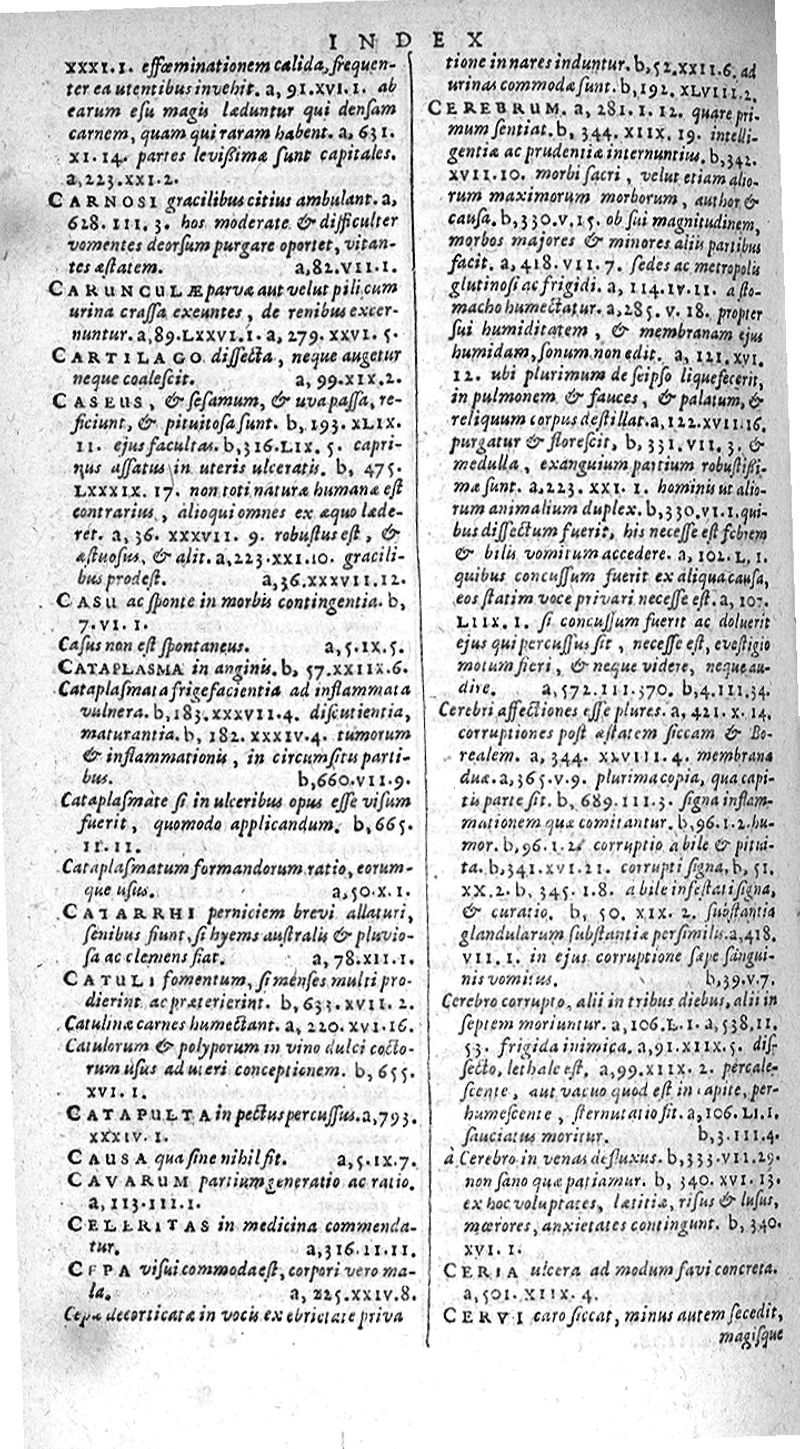 INDEX
XXXI.I. effœminationem calida, frequen-
ter ea utentibus invehit. a, 91.XVI.I. ab
earum esu magis læduntur qui densam
carnem, quam qui raram habent. a, 631.
XI.14. partes levißimæ sunt capitales.
a, 223.XXI.2.
CARNOSI gracilibus citius ambulant. a,
628.III.3. hos moderate & difficulter
vomentes deorsum purgare oportet, vitan-
tes æstatem. a, 82.VII.I.
CARUNCULÆ parvæ aut velut pili cum
urina crassa exeuntes, de renibus excer-
nuntur. a, 89.LXXVI.I. a, 279.XXVI.5.
CARTILAGO dissecta, neque augetur
neque coalescit. a, 99.XIX.2.
CASEUS, & sesamum, & uva passa, re-
ficiunt, & pituitosa sunt. b, 193.XLIX.
II. ejus facultas. b, 316.LIX.5. capri-
nus assatus in uteris ulceratis. b, 475.
LXXXIX.17. non toti naturæ humanæ est
contrarius, alioqui omnes ex æquo læde-
ret. a, 36.XXXVII.9. robustus est, &
æstuosus, & alit. a, 223.XXI.10. gracili-
bus prodest. a, 36.XXXVII.12.
CASU ac sponte in morbis contingentia. b,
7.VI.I.
Casus non est spontaneus. a, 5.IX.5.
CATAPLASMA in anginis. b, 57.XXIIX.6.
Cataplasmata frigefacientia ad inflammata
vulnera. b, 183.XXXVII.4. discutientia,
maturantia. b, 182.XXXIV.4. tumorum
& inflammationis, in circumsitu parti-
bus. b, 660.VII.9.
Cataplasmate si in ulceribus opus esse visum
fuerit, quomodo applicandum. b, 665.
II.II.
Cataplasmatum formandorum ratio, eorum-
que usus. a, 50.X.I.
CATARRHI perniciem brevi allaturi,
senibus fiunt, si hyems australis & pluvio-
sa ac clemens fiat. a, 78.XII.I.
CATULI fomentum, si menses multi pro-
dierint ac præterierint. b, 633.XVII.2.
Catulinæ carnes humectant. a, 220.XVI.16.
Catulorum & polyporum in vino dulci cocto-
rum usus ad uteri conceptionem. b, 655.
XVI.I.
CATAPULTA in pectus percussus. a, 793.
XXXIV.I.
CAUSA qua sine nihil fit. a, 5.IX.7.
CAVARUM partium generatio ac ratio.
a, 113.III.I.
CELERITAS in medicina commenda-
tur. a, 316.II.II.
CEPA visui commoda est, corpori vero ma-
la. a, 225.XXIV.8.
Cepa decorticata in vocis ex ebrietate priva
tione in nares induntur. b, 52.XXII.6. ad
urinas commodæ sunt. b, 192.XLVIII.2.
CEREBRUM. a, 281.I.12. quare pri-
mum sentiat. b, 344.XIIX.19. intelli-
gentiæ ac prudentiæ internuntius. b, 342.
XVII.10. morbi sacri, velut etiam alio-
rum maximorum morborum, author &
causa. b, 330.V.15. ob sui magnitudinem,
morbos majores & minores aliis partibus
facit. a, 418.VII.7. sedes ac metropolis
glutinosi ac frigidi. a, 114.IV.II. a sto-
macho humectatur. a, 285.V.18. propter
sui humiditatem, & membranam ejus
humidam, sonum non edit. a, 121.XVI.
12. ubi plurimum de seipso liquefecerit,
in pulmonem, & fauces, & palatum, &
reliquum corpus destillat. a, 122.XVII.16.
purgatur & florescit, b, 331.VII.3. &
medulla, exanguium partium robustißi-
mæ sunt. a, 223.XXI.I. hominis ut alio-
rum animalium duplex. b, 330.VI.I. qui-
bus dissectum fuerit, his necesse est febrem
& bilis vomitum accedere. a, 102.L.I.
quibus concussum fuerit ex aliqua causa,
eos statim voce privari necesse est. a, 107.
LIIX.I. si concussum fuerit ac doluerit
ejus qui percussus sit, necesse est, evestigio
motum fieri, & neque videre, neque au-
dire. a, 572.III.370. b, 4.III.34.
Cerebri affectiones esse plures. a, 421.X.14.
corruptiones post æstatem siccam & Bo-
realem. a, 344.XXVIII.4. membrana
duæ. a, 365.V.9. plurima copia, qua capi-
tis parte sit. b, 689.III.3. signa inflam-
mationem quæ comitantur. b, 96.I.2. hu-
mor. b, 96.I.2. corruptio à bile & pitui-
ta. b, 341.XVI.21. corrupti signa, b, 51.
XX.2. b, 345.I.8. a bile infestati signa,
& curatio. b, 50.XIX.2. substantia
glandularum substantiæ persimilis. a, 418.
VII.I. in ejus corruptione sæpe sangui-
nis vomitus. b, 39.V.7.
Cerebro corrupto, alii in tribus diebus, alii in
septem moriuntur. a, 106.L.I. a, 538.II.
53. frigida inimica. a, 91.XIIX.5. dis-
secto, lethale est, a, 99.XIIX.2. percale-
scente, aut vacuo quod est in capite, per-
humescente, sternutatio fit. a, 106.LI.I.
sauciatus moritur. b, 3.III.4.
à Cerebro in venas defluxus. b, 333.VII.29.
non sano quæ patiamur. b, 340.XVI.13.
ex hoc voluptates, lætitiæ, risus & lusus,
mœrores, anxietates contingunt. b, 340.
XVI.I.
CERIA ulcera ad modum favi concreta.
a, 501.XIIX.4.
CERVI caro siccat, minus autem secedit,
magisque